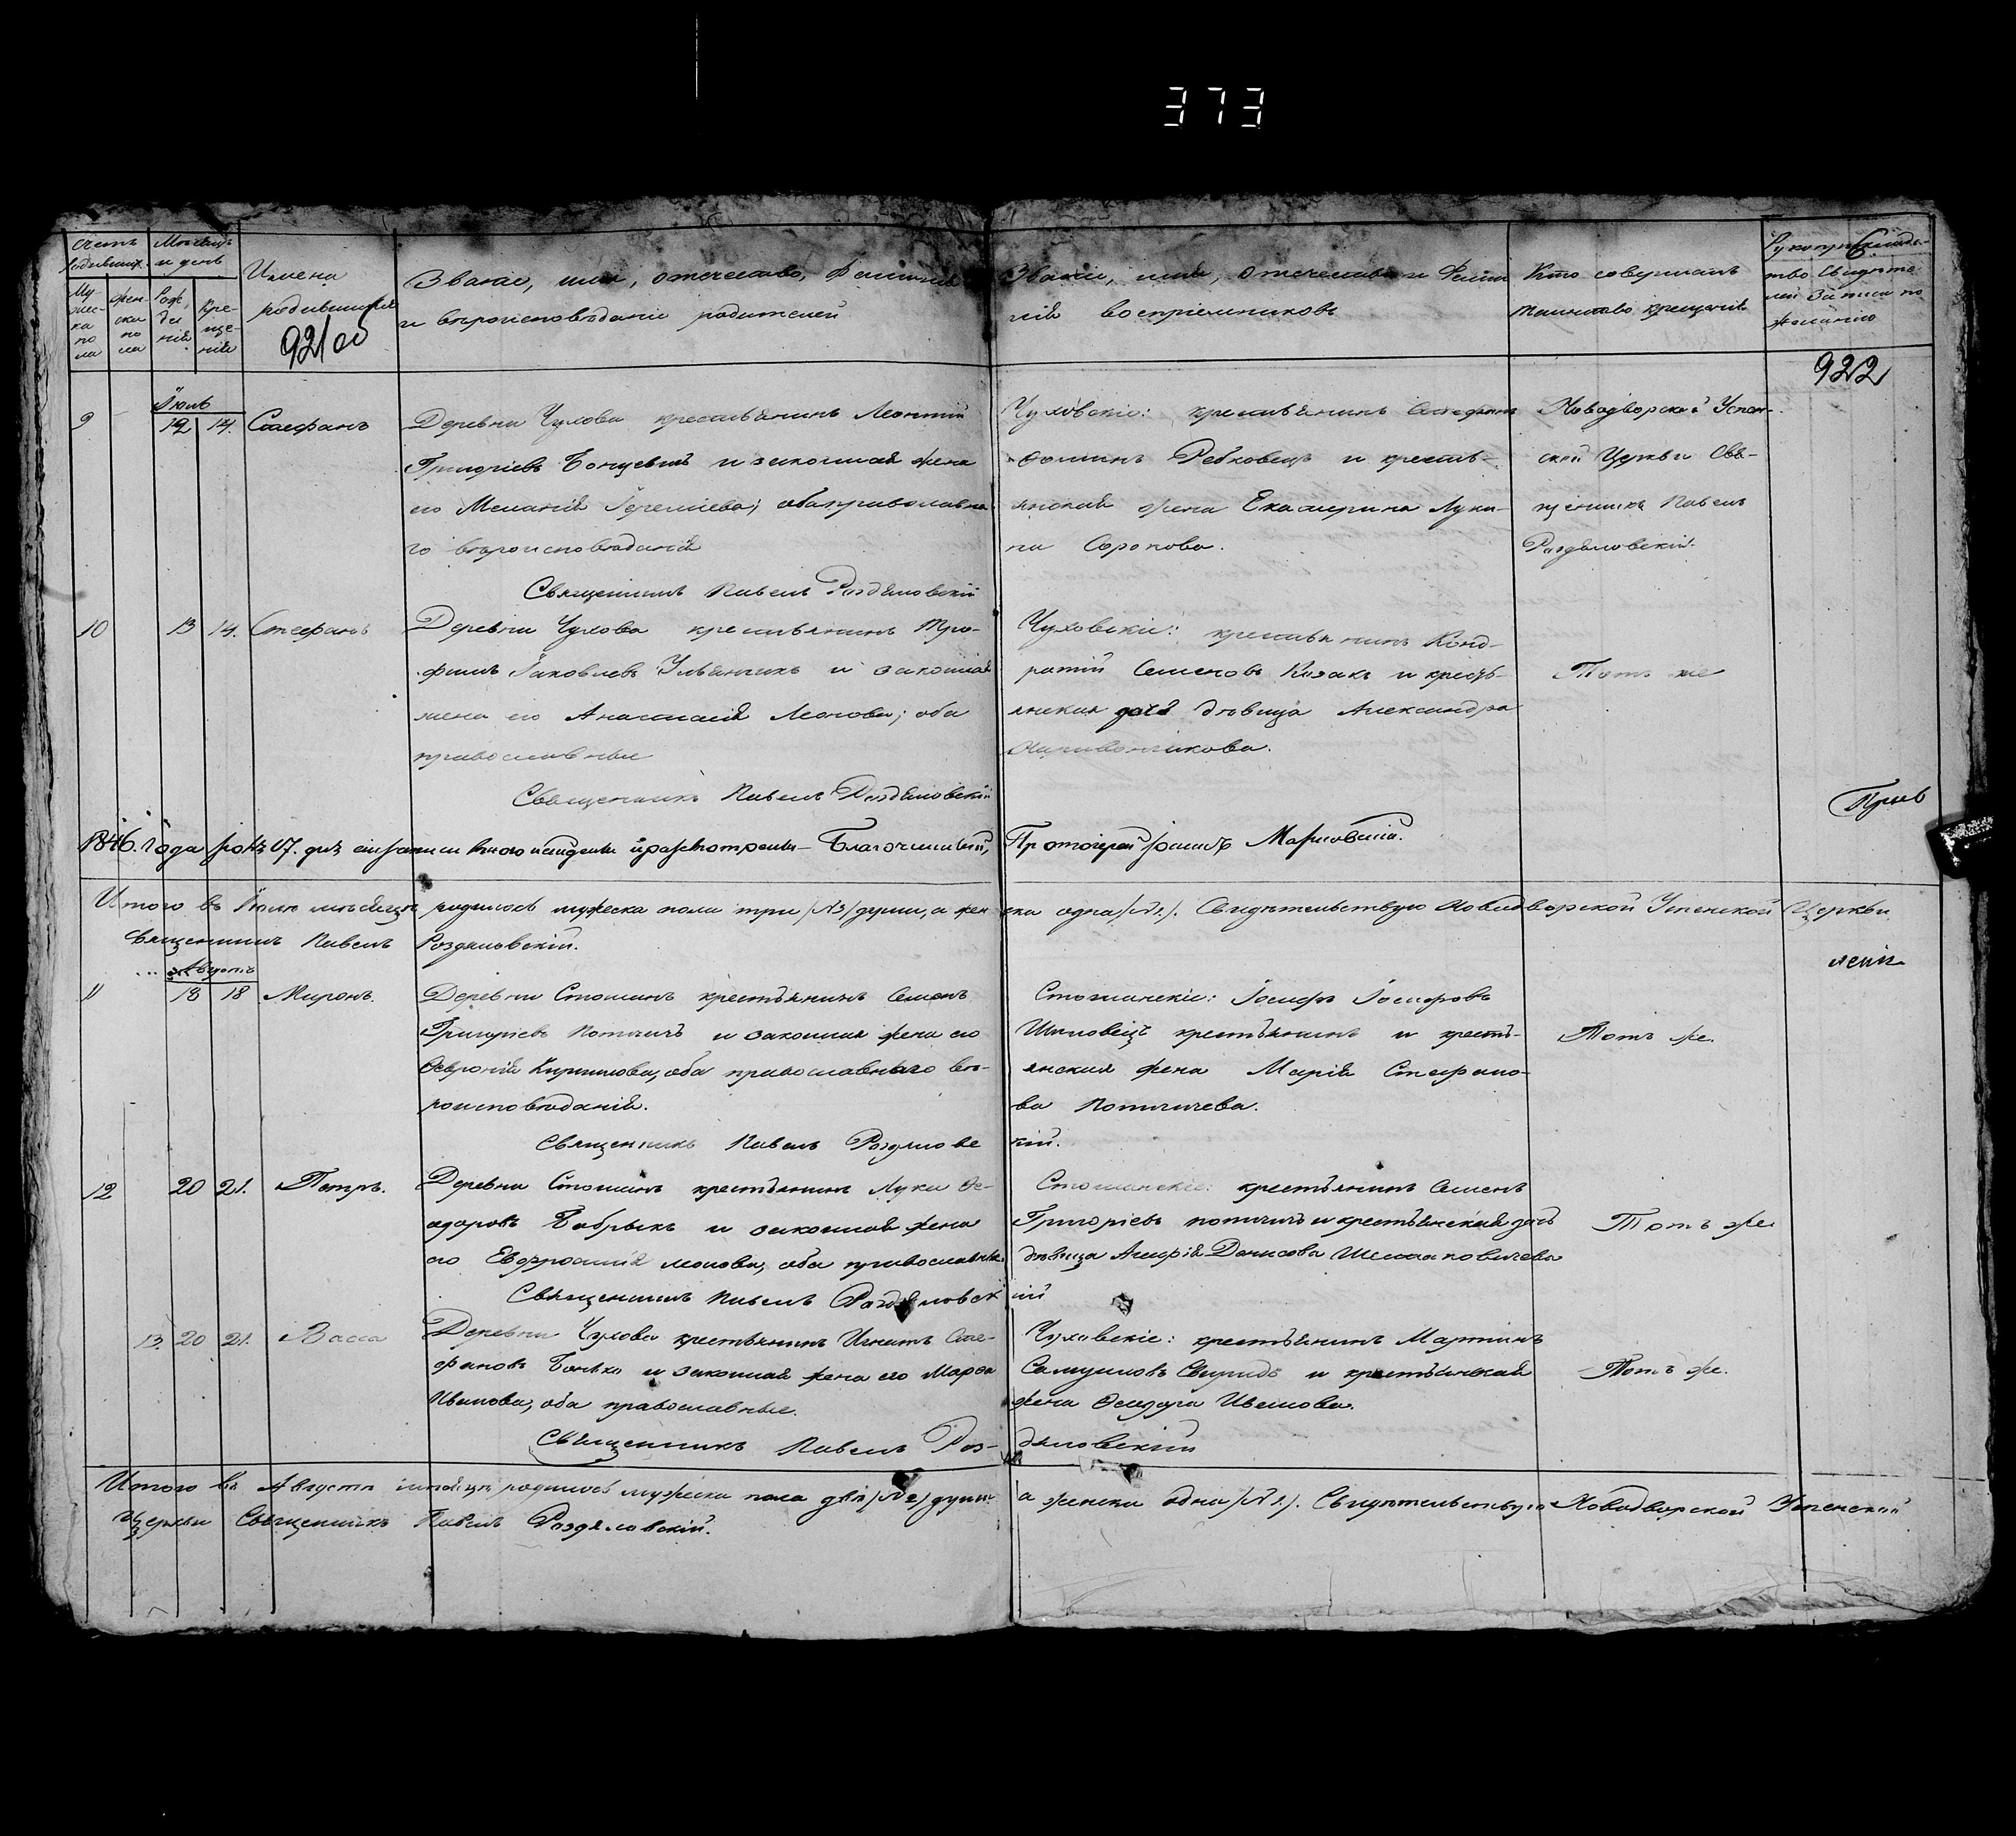 373
Счетъ родившихъ.
Мѣсяцъ и день
Имена родившихся
Звание, имя, отечество, фамилия
и вѣроисповѣданіе родителей
Званіе, имя, отечество и фами
лія воспріемниковъ
Кто совершалъ
таинство крещенія
Рукоприкладь-
тво свидѣте
лей записи по
желанію
6.
Му
жес-
ка
по
ла
жен-
ска
по
ла
Рож,
де
нія
Кре-
ще-
нія
921 об
922
Іюль
9 12 14. Стефанъ
Деревни Чухова крестьянинъ Леонтій
Григоріевъ и законная жена
его Меланія Іереміева; оба православна
го вѣроисповѣданія
Священникъ Павелъ Роздяловскій
Чуховскіе: крестьянинъ Стефанъ
Ребковецъ и кресть-
янская жена Екатерина Луки-
на Сорокова.
Новодворской Успен-
ской Церкви Свя-
щенникъ Павелъ
Роздяловскій.
10 13 14. Стефанъ
Деревни Чухова крестьянинъ Тро-
фимъ Іаковлевъ Ульянчикъ и законная
жена его Анастасія Леонова; оба
православные
Священникъ Павелъ Роздяловскій
Чуховскіе: крестьянинъ Конд-
ратій Семеновъ Козакъ и кресть-
янская дочь дѣвица Александра
Тотъ же
Прив
1846. года 17. дня сія записи Благочинный, Протоіерей Мариовскій.
Итого въ Іюлѣ мѣсяцѣ родилось мужеска пола три /№3/ души, а жен ска одна /№1./. Свидѣтельствую Новодворской Успенской Церкви
Священникъ Павелъ Роздяловскій.
Августъ
11 18 18 Миронъ.
Деревни Стошинъ крестьянинъ Семенъ
Григорьевъ Потапчичъ и законная жена его
Февронія Кириллова, оба православнаго вѣ-
роисповѣданія.
Священникъ Павелъ Роздяловс
кій.
Стошинскіе: Іосифъ Іосифовъ
крестьянинъ и кресть-
янская жена Марія Стефано-
ва
Тотъ же.
12 20 21. Петръ.
Деревни Стошинъ крестьянинъ Лука Фе-
одоровъ Бобрыкъ и законная жена
его Евфросинія леонова, оба православные.
Священникъ Павелъ Роздяловск
ій
Стошинскіе: крестьянинъ Семенъ
Григоріевъ и крестьянская дочь
дѣвица Денисова
Тотъ же
13. 20 21. Васса
Деревни Чухова крестьянинъ Игнатъ Сте-
фановъ и законная жена его Марфа
Иванова, оба православные.
Священникъ Павелъ Роз-
дяловскій
Чуховскіе: крестьянинъ Мартинъ
Самуиловъ Свиридъ и крестьянская
жена Феодора Иванова.
Тотъ же.
Итого въ Августѣ мѣсяцѣ родилось мужеска пола двѣ /№2/ души а женска одна /№1./. Свидѣтельствую Новодворской Успенской
Церкви Священникъ Павелъ Роздяловскій.